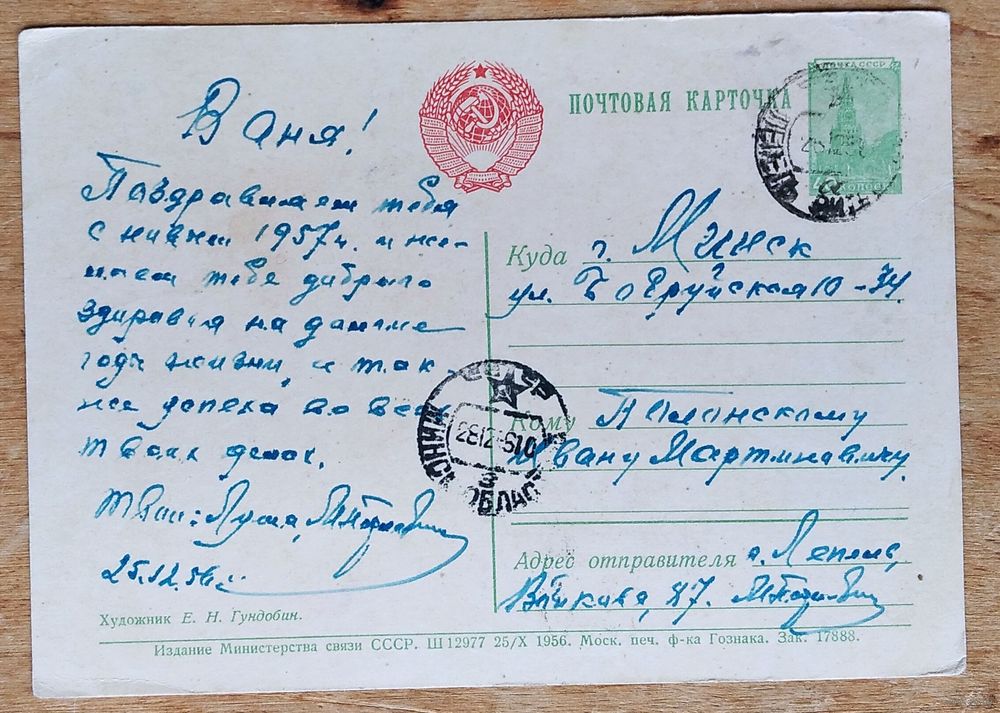 ПОЧТОВАЯ КАРТОЧКА
ПОЧТА СССР
Ваня!
Поздравляем тебя
с новым 1957г. и же-
лаем тебе доброго
здравия на долгие
годы жизни, и так
же успеха во всех
твоих делах.
Твои: Луша,
25.12.56г.
Куда г. Минск
ул. Бобруйская 10-34
Кому
Ивану Мартиновичу
Адрес отправителя г. Лепель,
87.
МИНСК ОБЛАС
2812-5710
3
Художник Е. Н. Гундобин.
Издание Министерства связи СССР. Ш 12977 25/X 1956. Моск. печ. ф-ка Гознака. Зак. 17888.